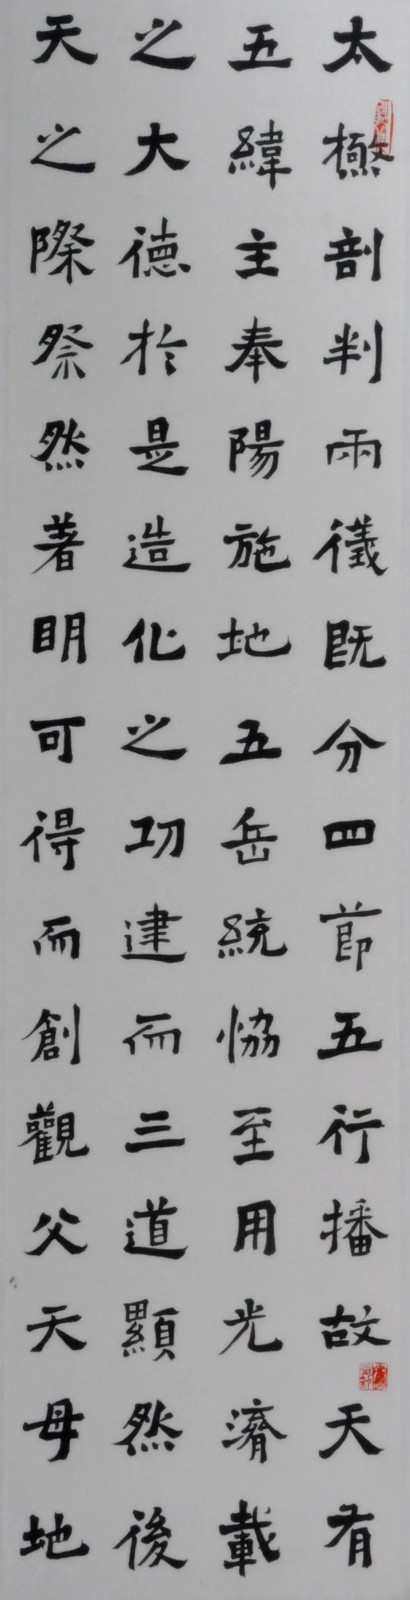 太極剖判兩儀既分四節五行播故天有
五緯主奉陽施地五岳統協至用光濟載
之大德於是造化之功建而三道顯然後
天之際祭然著明可得而創觀父天母地